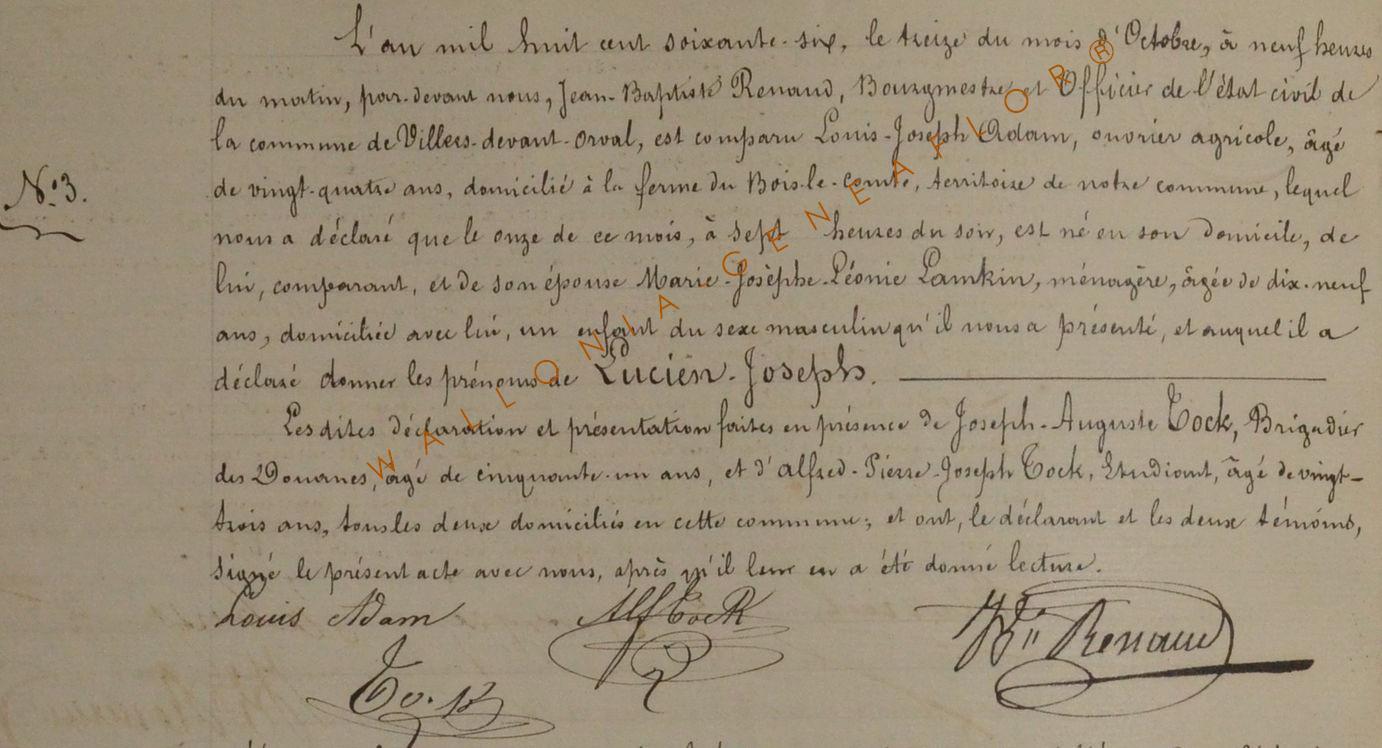 L'an mil huit cent soixante-six, le treize du mois d'Octobre, à neuf heures
du matin, par-devant nous, Jean-Baptiste Renaud, Bourgmestre et Officier de l'état civil de
la commune de Villers-devant-Orval, est comparu Louis-Joseph Adam, ouvrier agricole, âgé
N.° 3.
de vingt-quatre ans, domicilié à la ferme du Bois-le-comte, territoire de notre commune, lequel
nous a déclaré que le onze de ce mois, à sept heures du soir, est né en son domicile, de
lui, comparant, et de son épouse Marie-Josèphe-Léonie Lamkin, ménagère, âgée de dix-neuf
ans, domiciliée avec lui, un enfant du sexe masculin qu'il nous a présenté, et auquel il a
déclaré donner les prénoms de Lucien-Joseph.
Les dites déclaration et présentation faites en présence de Joseph-Auguste Tock, Brigadier
des Douanes, âgé de cinquante-un ans, et d'Alfred-Pierre-Joseph Tock, Etudiant, âgé de vingt-
trois ans, tous les deux domiciliés en cette commune; et ont, le déclarant et les deux témoins,
signé le présent acte avec nous, après qu'il leur en a été donné lecture.
Louis Adam Alf Tock Bte Renaud
Tock
WALLONIA GENEAFLORR ®